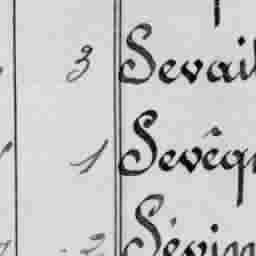 3 Sevail
1 Sevêq
2 Sévin